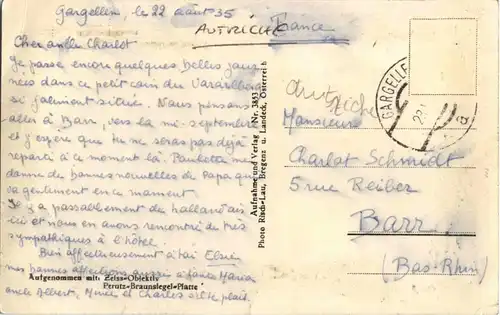 Gargellen, le 22 août 35
AUTRICHE
France
Cher oncle Charlot
Je passe encore quelques belles jour-
nées dans ce petit coin du Vorarlberg
si joliment situé. Nous pensons
aller à Barr, vers la mi-septembre
et j'espère que tu ne seras pas déjà
reparti à ce moment là. Paulette me
donne de bonnes nouvelles de Papa qui
va gentiment en ce moment.
Il y a passablement de hollandais
ici et nous en avons rencontré de très
sympathiques à l'hôtel.
Bien affectueusement à toi Elsie
mes bonnes affections aussi à tante Maria
oncle Albert, et Charles s'il te plaît.
Aufgenommen mit: Zeiss-Objektiv
Perutz-Braunsiegel-Platte
Aufnahme und Verlag Nr. 3833
Photo Risch-Lau, Bregenz u. Landeck, Österreich
Autriche
Monsieur
Charlot Schmidt
5 rue Reiber
Barr
(Bas-Rhin)
GARGELLE